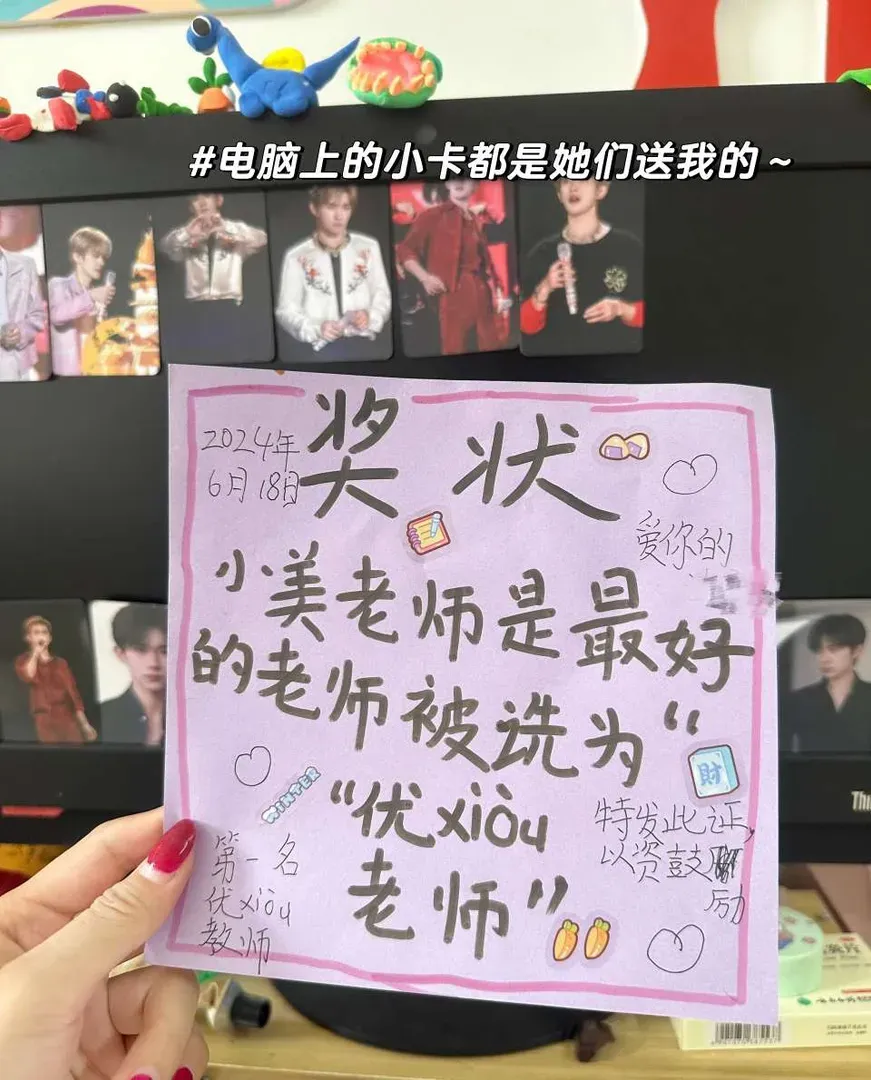 #电脑上的小卡都是她们送我的～
奖状
2024年
6月18日
爱你的
小美老师是最好
的老师被选为“
“优xiòu
老师”
財
WINTER
第一名
优xiòu
教师
特发此证,
以资鼓
励
Thin